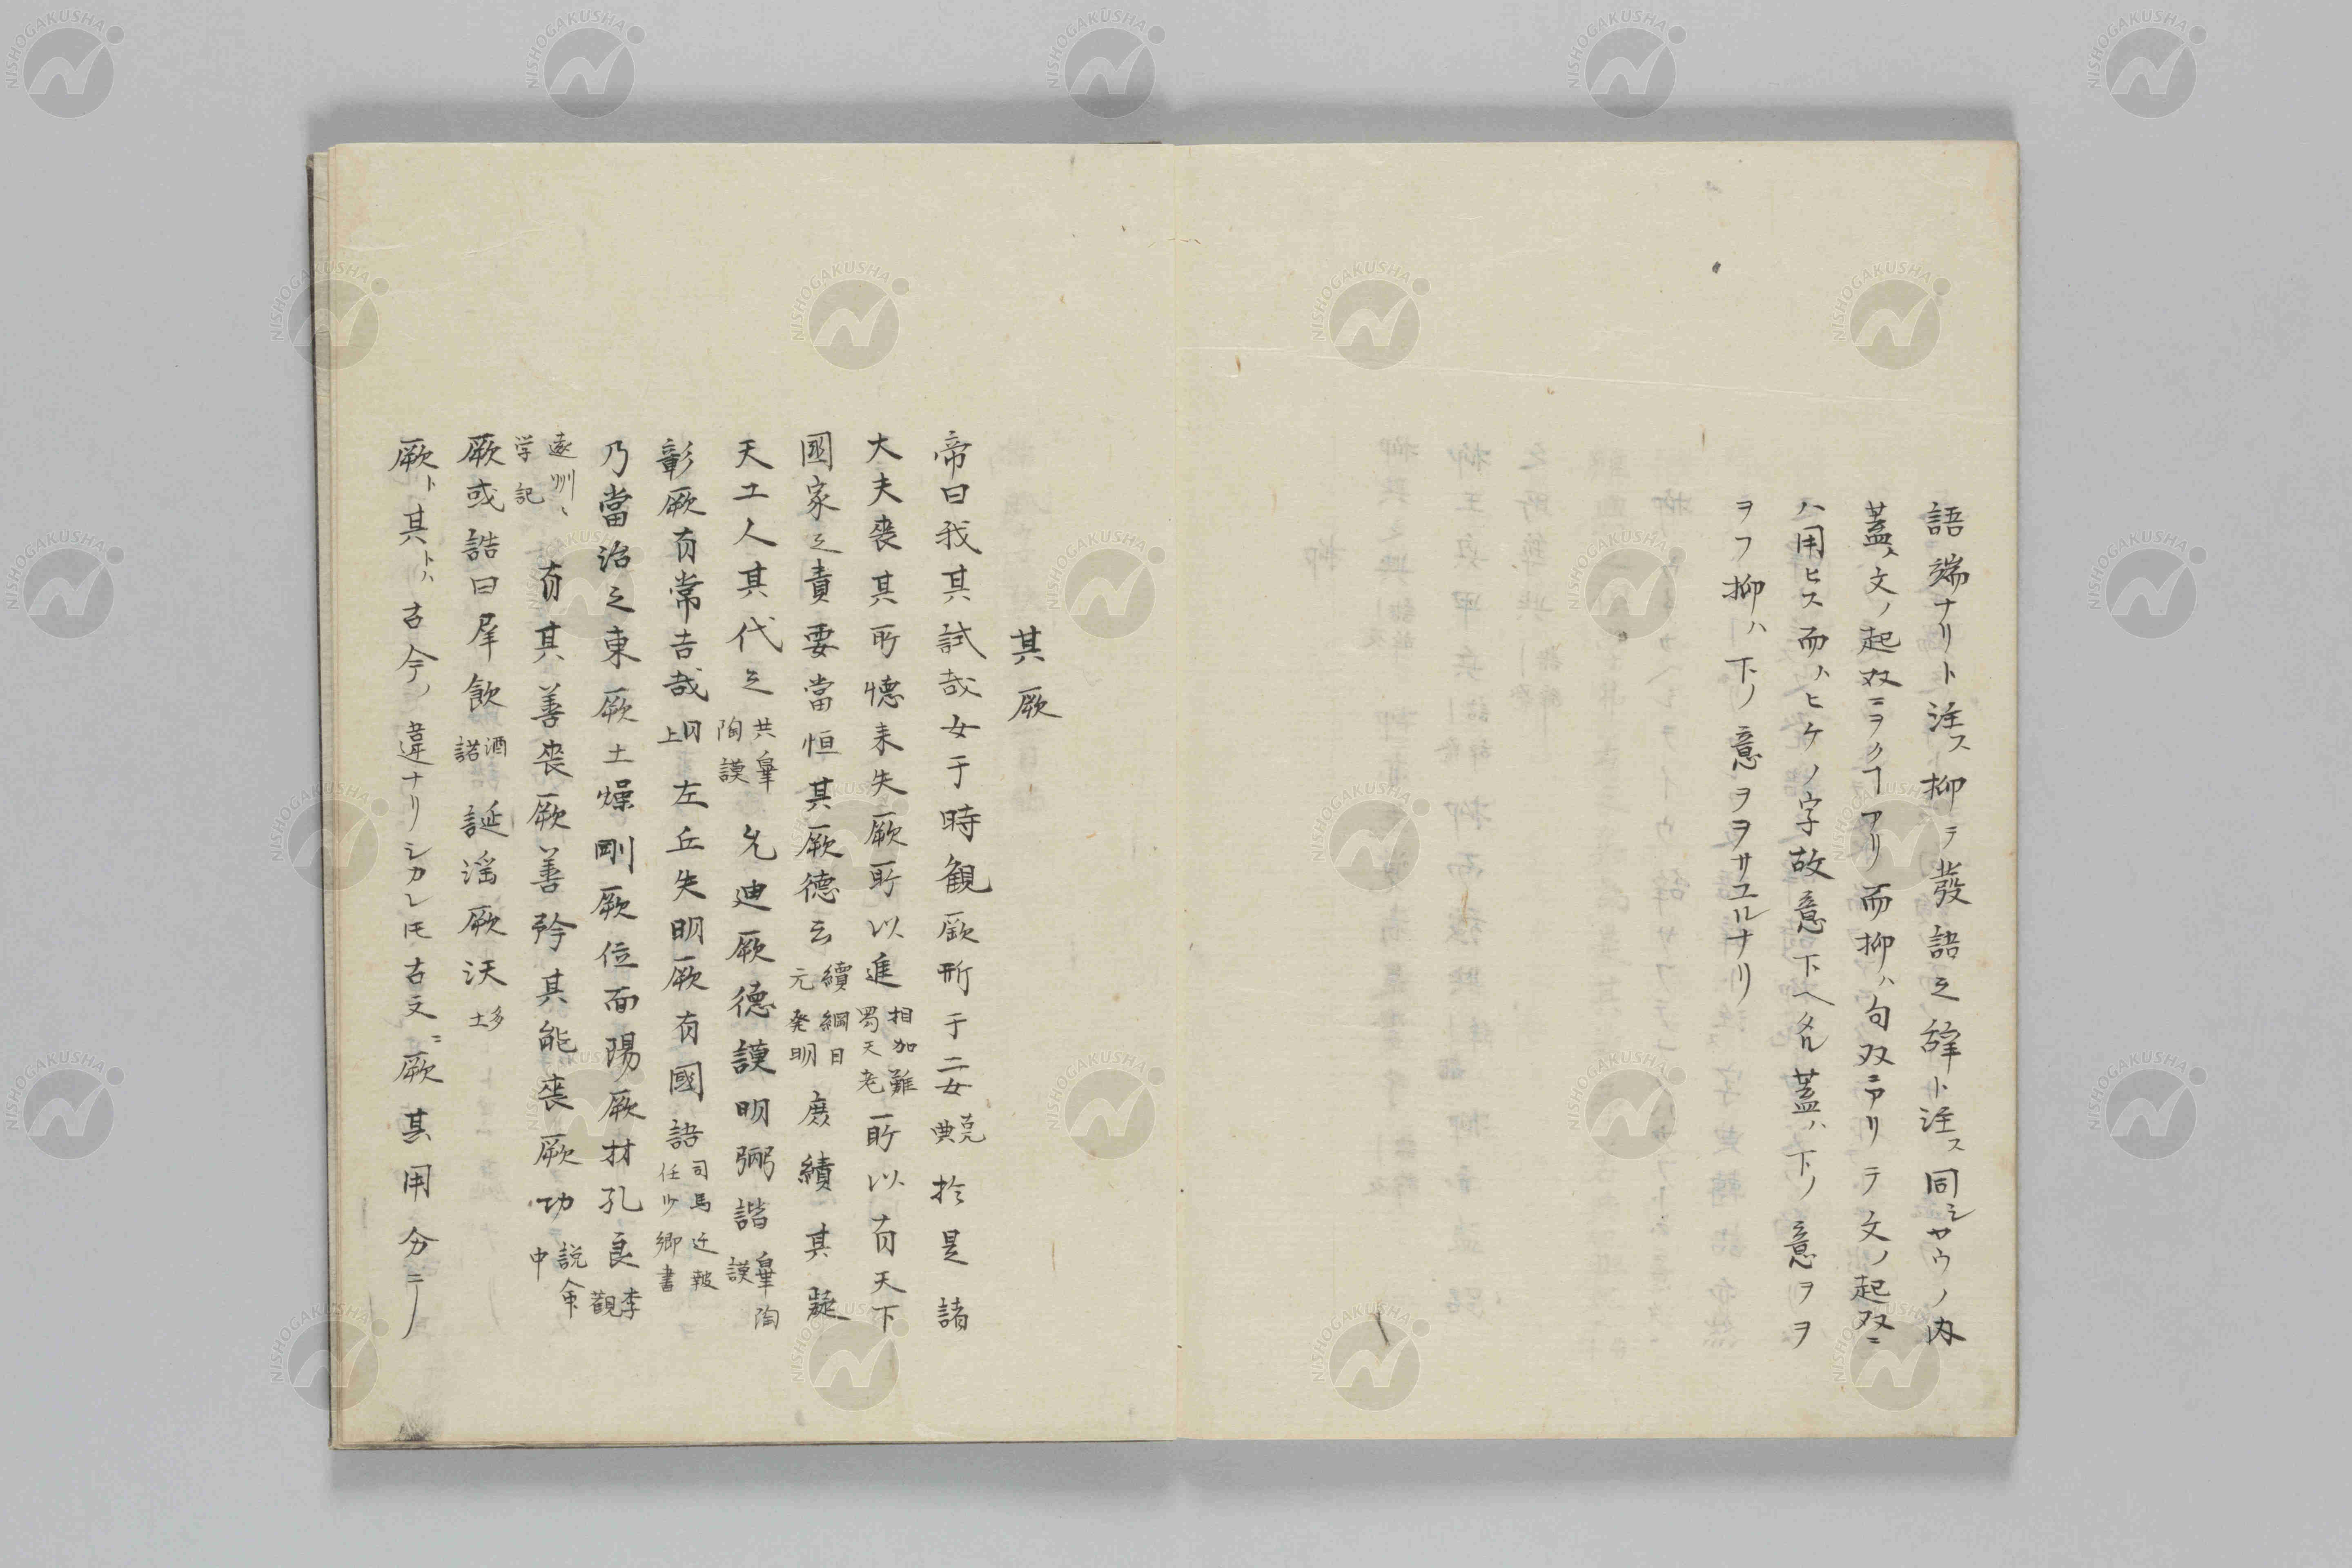 語端ナリト注ス抑テ發語之辞ト注ス同シヤウノ内
蓋ハ文ノ起双ニヲクヿアリ而抑ハ句双ニアリテ文ノ起双ニ
ハ用ヒス而ハヒケノ字故意下ヘ
蓋ハ下ノ意ヲヲ
ヲフ抑ハ下ノ意ヲヲサユルナリ
其厥
帝曰我其試哉女于時観厥所于二女堯典於是諸
大夫喪其所徳来失厥所以進相如難蜀天老所以有天下
國家之責要當恒其厥德云續綱目元発明庶績其凝
天工人其代之共皐陶謨允迪厥德謨明弼諧皐陶謨
彰厥有常吉哉同上左丘失明厥有國語司馬迁報任少卿書
乃當治之東厥土燥剛厥位面陽厥材孔良李觀
遠州〻学記有其善喪厥善矜其能喪厥功說命中
厥或誥曰羣飲酒誥誕淫厥泆多士
厥ト其トハ古今ノ違ナリシカレ𪜈古文ニ厥其用分ニノ
NISHOGAKUSHA